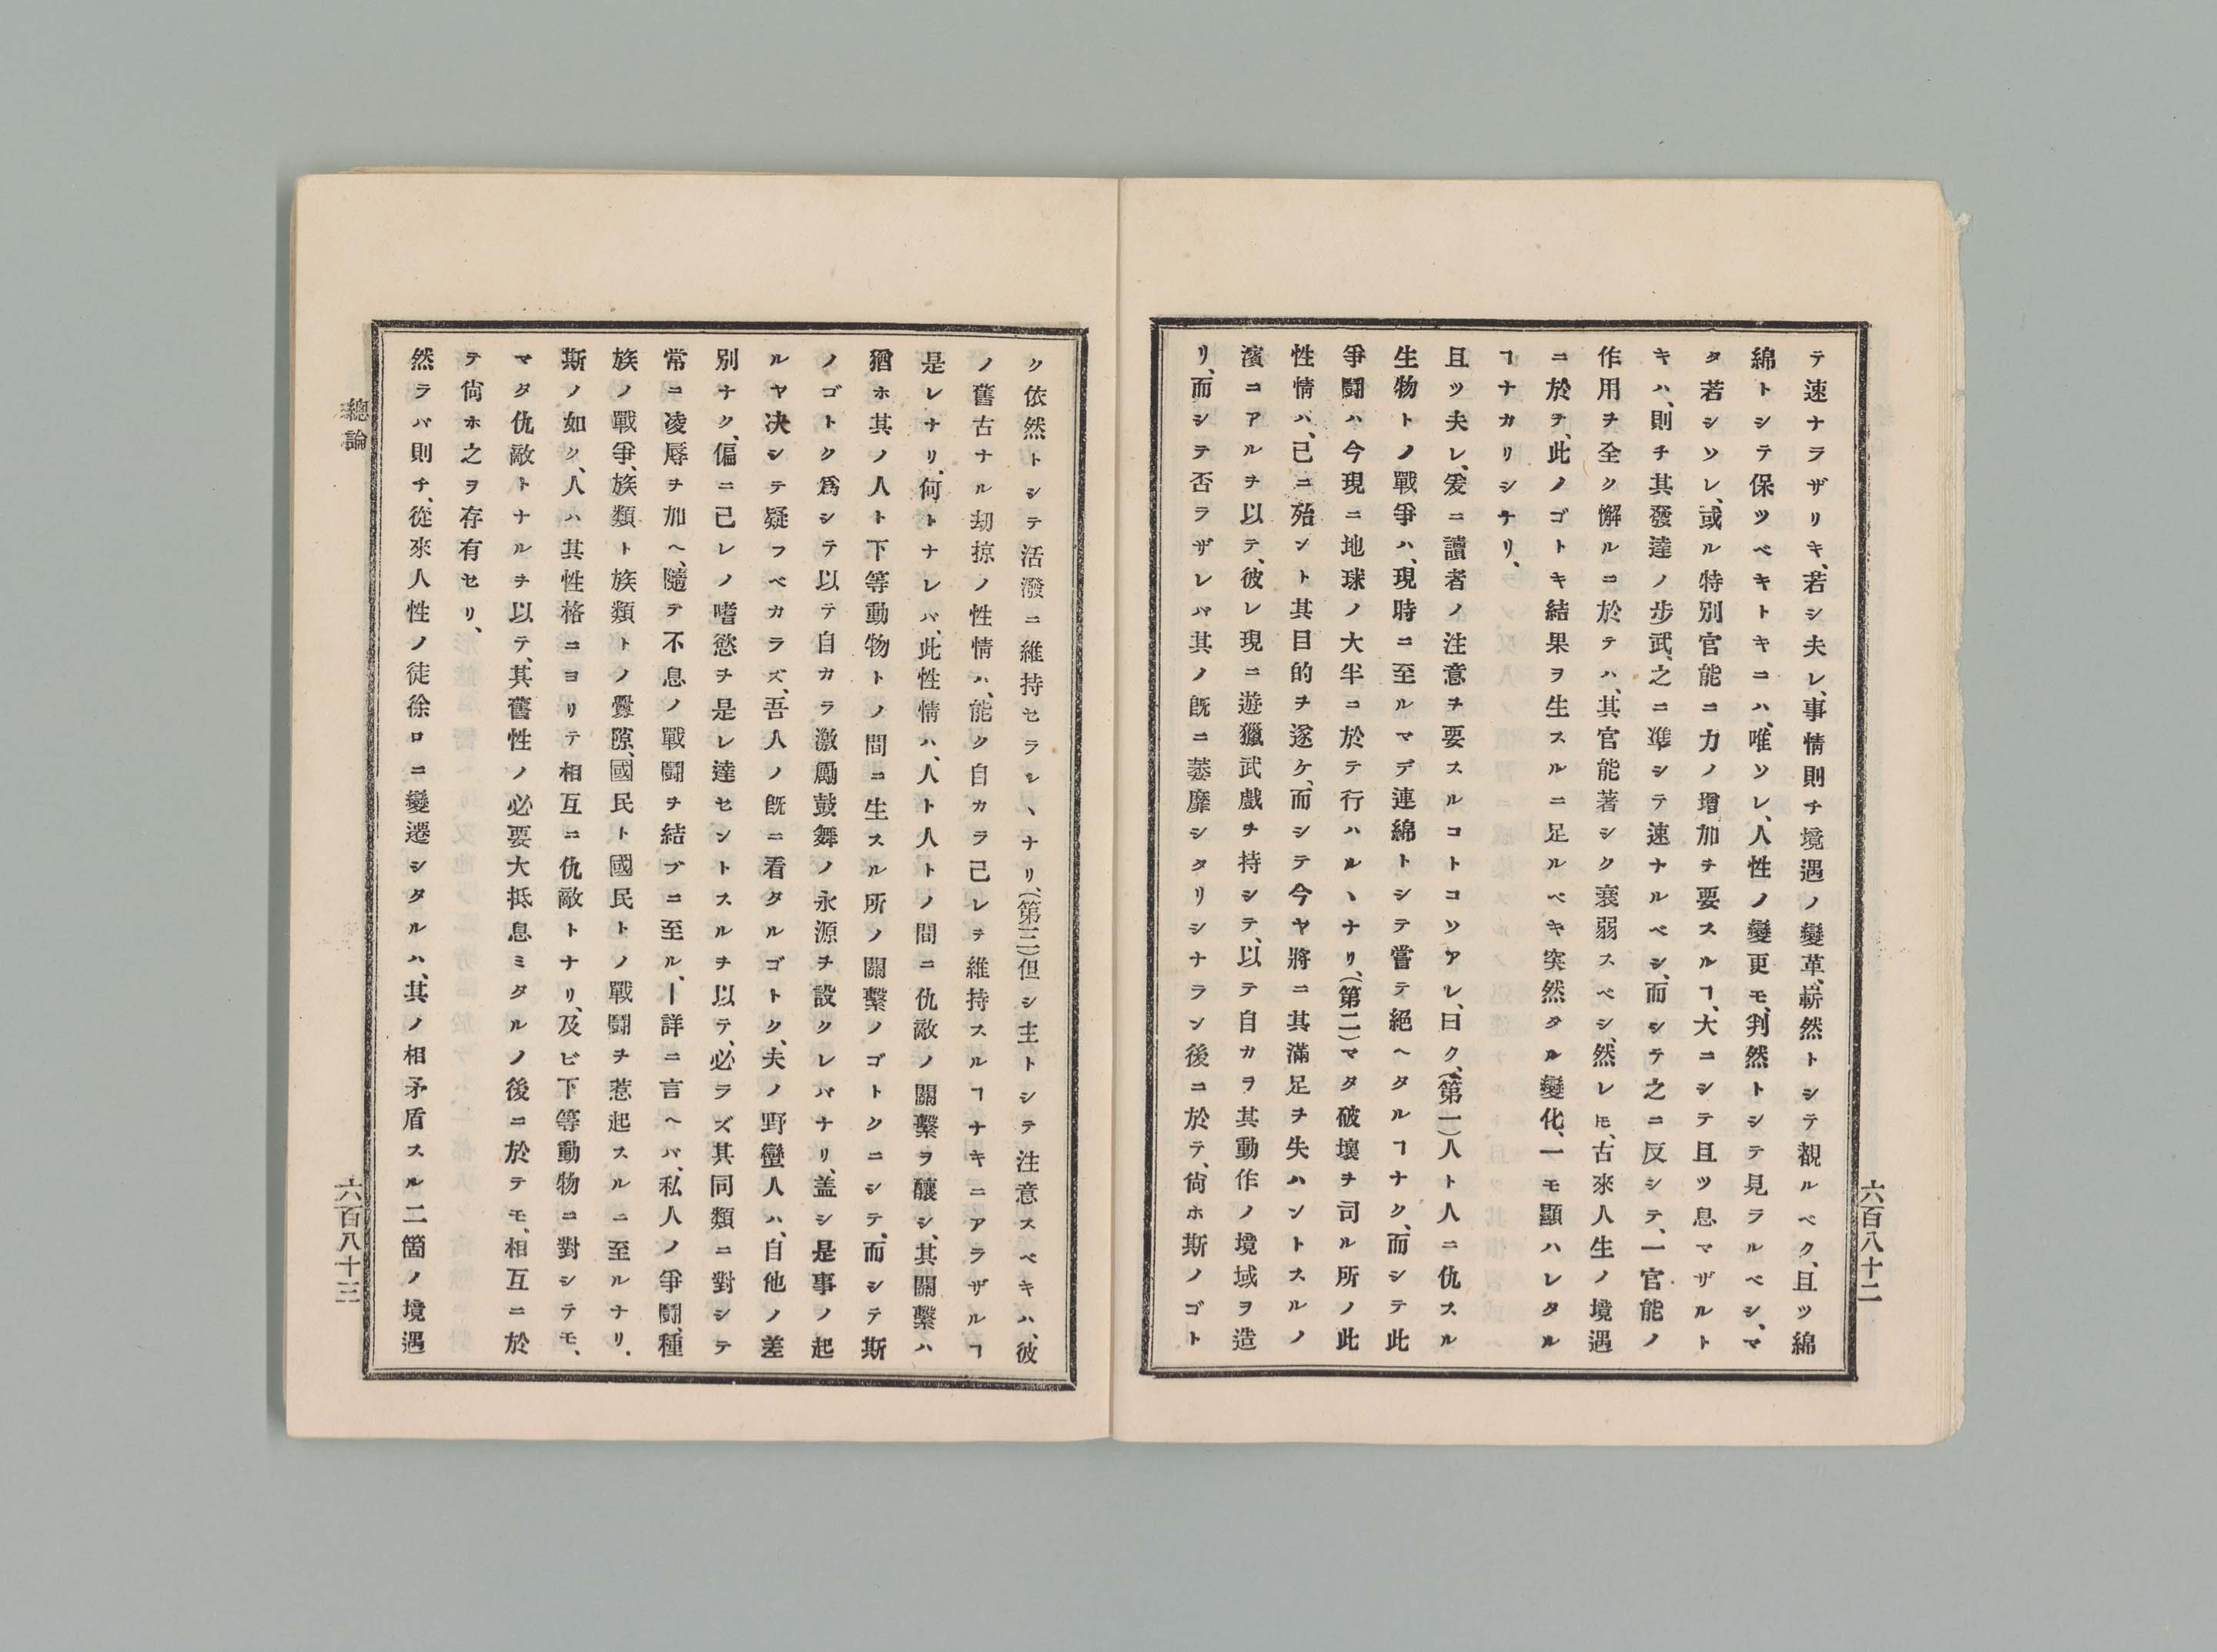 テ速ナラザリキ、若シ夫レ、事情則チ境遇ノ變革、嶄然トシテ観ルベク、且ツ綿
綿トシテ保ツベキトキニハ、唯ソレ、人性ノ變更モ、判然トシテ見ラルベシ、マ
タ若シソレ、或ル特別官能ニ力ノ增加ヲ要スルヿ、大ニシテ且ツ息マザルト
キハ、則チ其發達ノ步武、之ニ準シテ速ナルベシ、而シテ之ニ反シテ、一官能ノ
作用ヲ全ク懈ルニ於テハ、其官能著シク衰弱スベシ、然レ𪜈、古來人生ノ境遇
ニ於テ、此ノゴトキ結果ヲ生スルニ足ルベキ突然タル變化、一モ顯ハレタル
ヿナカリシナリ、
且ツ夫レ、爰ニ讀者ノ注意ヲ要スルコトコソアレ、曰ク、(第一)人ト人ニ仇スル
生物トノ戰爭ハ、現時ニ至ルマデ連綿トシテ嘗テ絕ヘタルヿナク、而シテ此
爭鬪ハ今現ニ地球ノ大半ニ於テ行ハルヽナリ、(第二)マタ破壞ヲ司ル所ノ此
性情ハ、已ニ殆ント其目的ヲ遂ケ、而シテ今ヤ將ニ其滿足ヲ失ハントスルノ
濱ニアルヲ以テ、彼レ現ニ遊獵武戲ヲ持シテ、以テ自カラ其動作ノ境域ヲ造
リ、而シテ否ラザレバ其ノ既ニ萎靡シタリシナラン後ニ於テ、尙ホ斯ノゴト
六百八十二
ク依然トシテ活潑ニ維持セラレヽナリ、(第三)但シ主トシテ注意スベキハ、彼
ノ舊古ナル刧掠ノ性情ハ、能ク自カラ己レヲ維持スルヿナキニアラザルヿ
是レナリ、何トナレバ、此性情ハ、人ト人トノ間ニ仇敵ノ關繫ヲ釀シ、其關繫ハ
猶ホ其ノ人ト下等動物トノ間ニ生スル所ノ關繫ノゴトクニシテ、而シテ斯
ノゴトク爲シテ以テ自カラ激勵鼓舞ノ永源ヲ設クレバナリ、盖シ是事ノ起
ルヤ决シテ疑フベカラズ、吾人ノ既ニ看タルゴトク、夫ノ野蠻人ハ、自他ノ差
別ナク、偏ニ己レノ嗜慾ヲ是レ達セントスルヲ以テ、必ラズ其同類ニ對シテ
常ニ凌辱ヲ加ヘ、隨テ不息ノ戰鬪ヲ結ブニ至ル、ー詳ニ言ヘバ、私人ノ爭鬪、種
族ノ戰爭、族類ト族類トノ釁隙、國民ト國民トノ戰鬪ヲ惹起スルニ至ルナリ、
斯ノ如ク、人ハ其性格ニヨリテ相互ニ仇敵トナリ、及ビ下等動物ニ對シテモ、
マタ仇敵トナルヲ以テ、其舊性ノ必要大抵息ミタルノ後ニ於テモ、相互ニ於
テ尙ホ之ヲ存有セリ、
然ラバ則チ、從來人性ノ徒徐ロニ變遷シタルハ、其ノ相矛盾スル二箇ノ境遇
總論
六百八十三